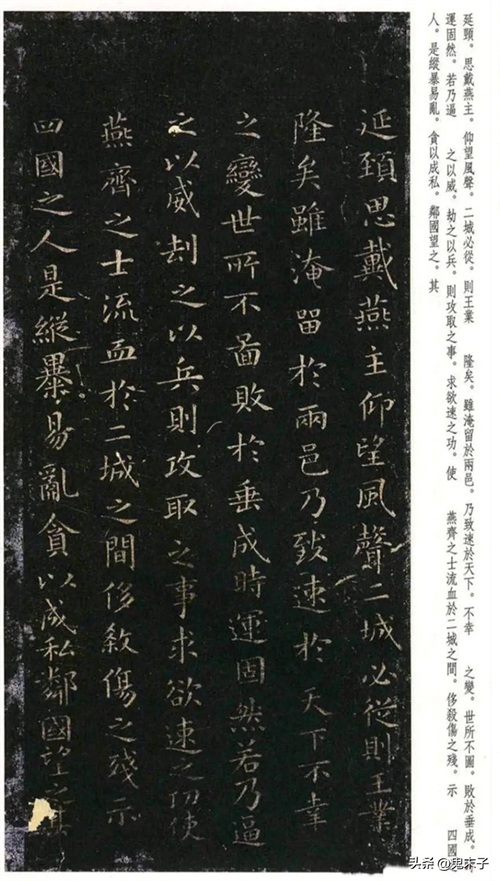 延頸。思戴燕主。仰望風聲。二城必從。則王業 隆矣。雖淹留於兩邑。乃致速於天下。不幸 之變。世所不圖。敗於垂成。
運固然。若乃逼 之以威。劫之以兵。則攻取之事。求欲速之功。使 燕齊之士流血於二城之間。侈殺傷之殘。示 四國
人。是縱暴易亂。貪以成私。鄰國望之。其
延頸思戴燕主仰望風聲二城必從則王業
隆矣雖淹留於兩邑乃致速於天下不幸
之變世所不啚敗於垂成時運固然若乃逼
之以威刦之以兵則攻取之事求欲速之功使
燕齊之士流血於二城之間侈敘傷之殘示
四國之人是縱暴易亂貪以成私鄰國望之其
头条 @